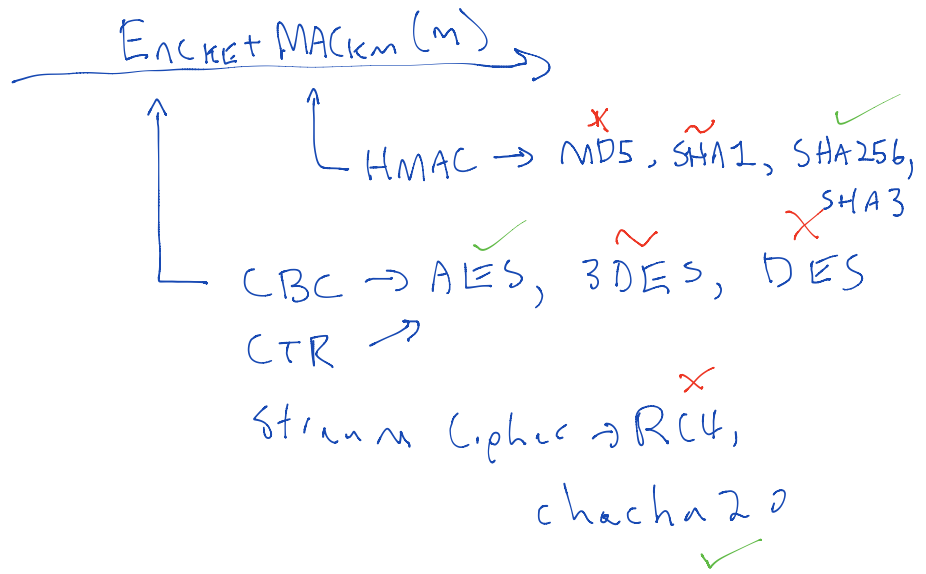 EncKE + MACKm (m)
HMAC → MD5, SHA1, SHA256,
SHA3
CBC → AES, 3DES, DES
CTR
Stream Cipher → RC4,
chacha20